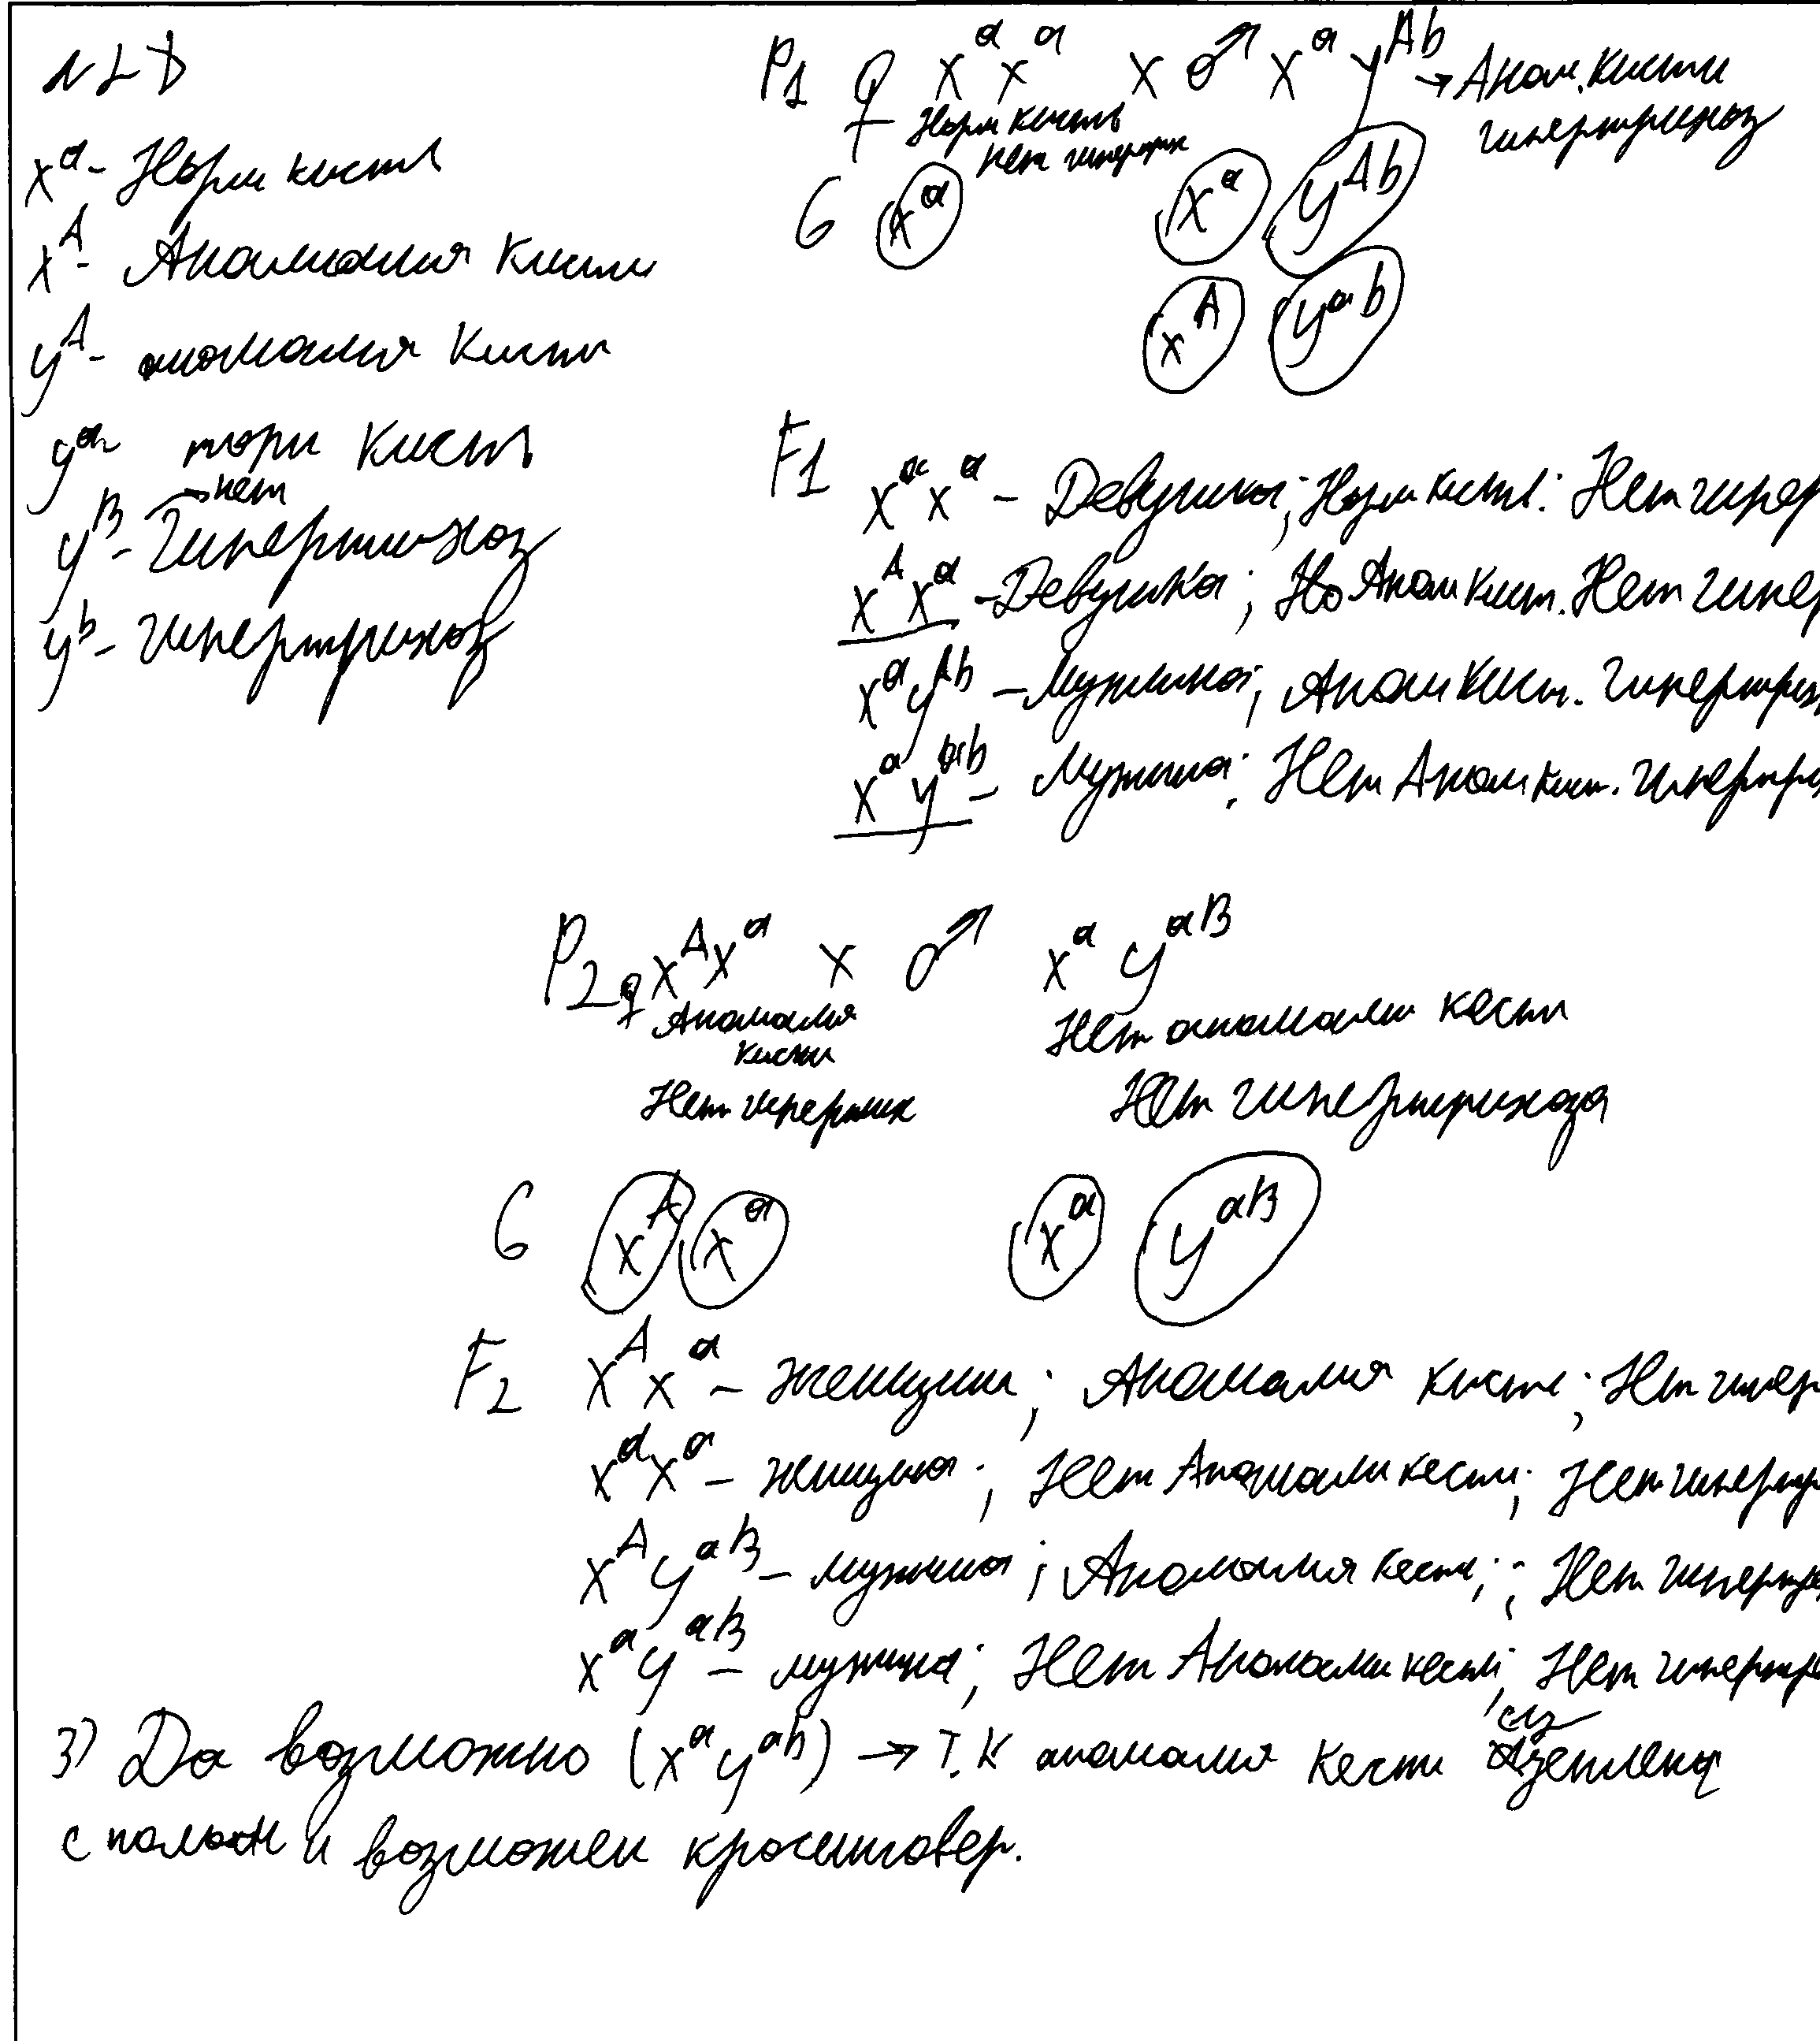 P1 ♀ XᵃXᵃ × ♂ XᵃYᴬᵇ → Аном. кисти
Норм кисть
Нет гипертрих
гипертрихоз
Xᵃ - Норм кисть
Xᴬ - Аномалия кисти
Yᴬ - аномалия кисти
Yᵃ норм кисть
→ нет
Yᴮ - Гипертихоз
Yᵇ - гипертрихоз
G Xᵃ Xᵃ Yᴬᵇ
Xᴬ Yᵃᵇ
F1
XᵃXᵃ - Девушка; Норм кисть: Нет гипер
XᴬXᵃ - Девушка; Но Аном кист. Нет гипер
XᵃYᴬᵇ - Мужчина; Аном кист. гипертрих
XᵃYᵃᵇ - Мужчина; Нет Аном кист. гипертр
P2 ♀ XᴬXᵃ × ♂ XᵃYᵃᴮ
Аномалия
кисти
Нет гипертих
Нет аномалии кести
Нет гипертрихоза
G Xᴬ Xᵃ Xᵃ Yᵃᴮ
F2 XᴬXᵃ - женщина; Аномалия кисти; Нет гипер
XᵃXᵃ - женщина; Нет Аномали кести; Нет гипертр
XᴬYᵃᴮ - мужчина; Аномалия кести; ; Нет гипертр
XᵃYᵃᴮ - мужчина; Нет Аномали кести; Нет гипертр
3) Да возможно (XᵃYᵃᵇ) → Т.К аномалия кести сцеплена
с полом и возможен кроссинговер.